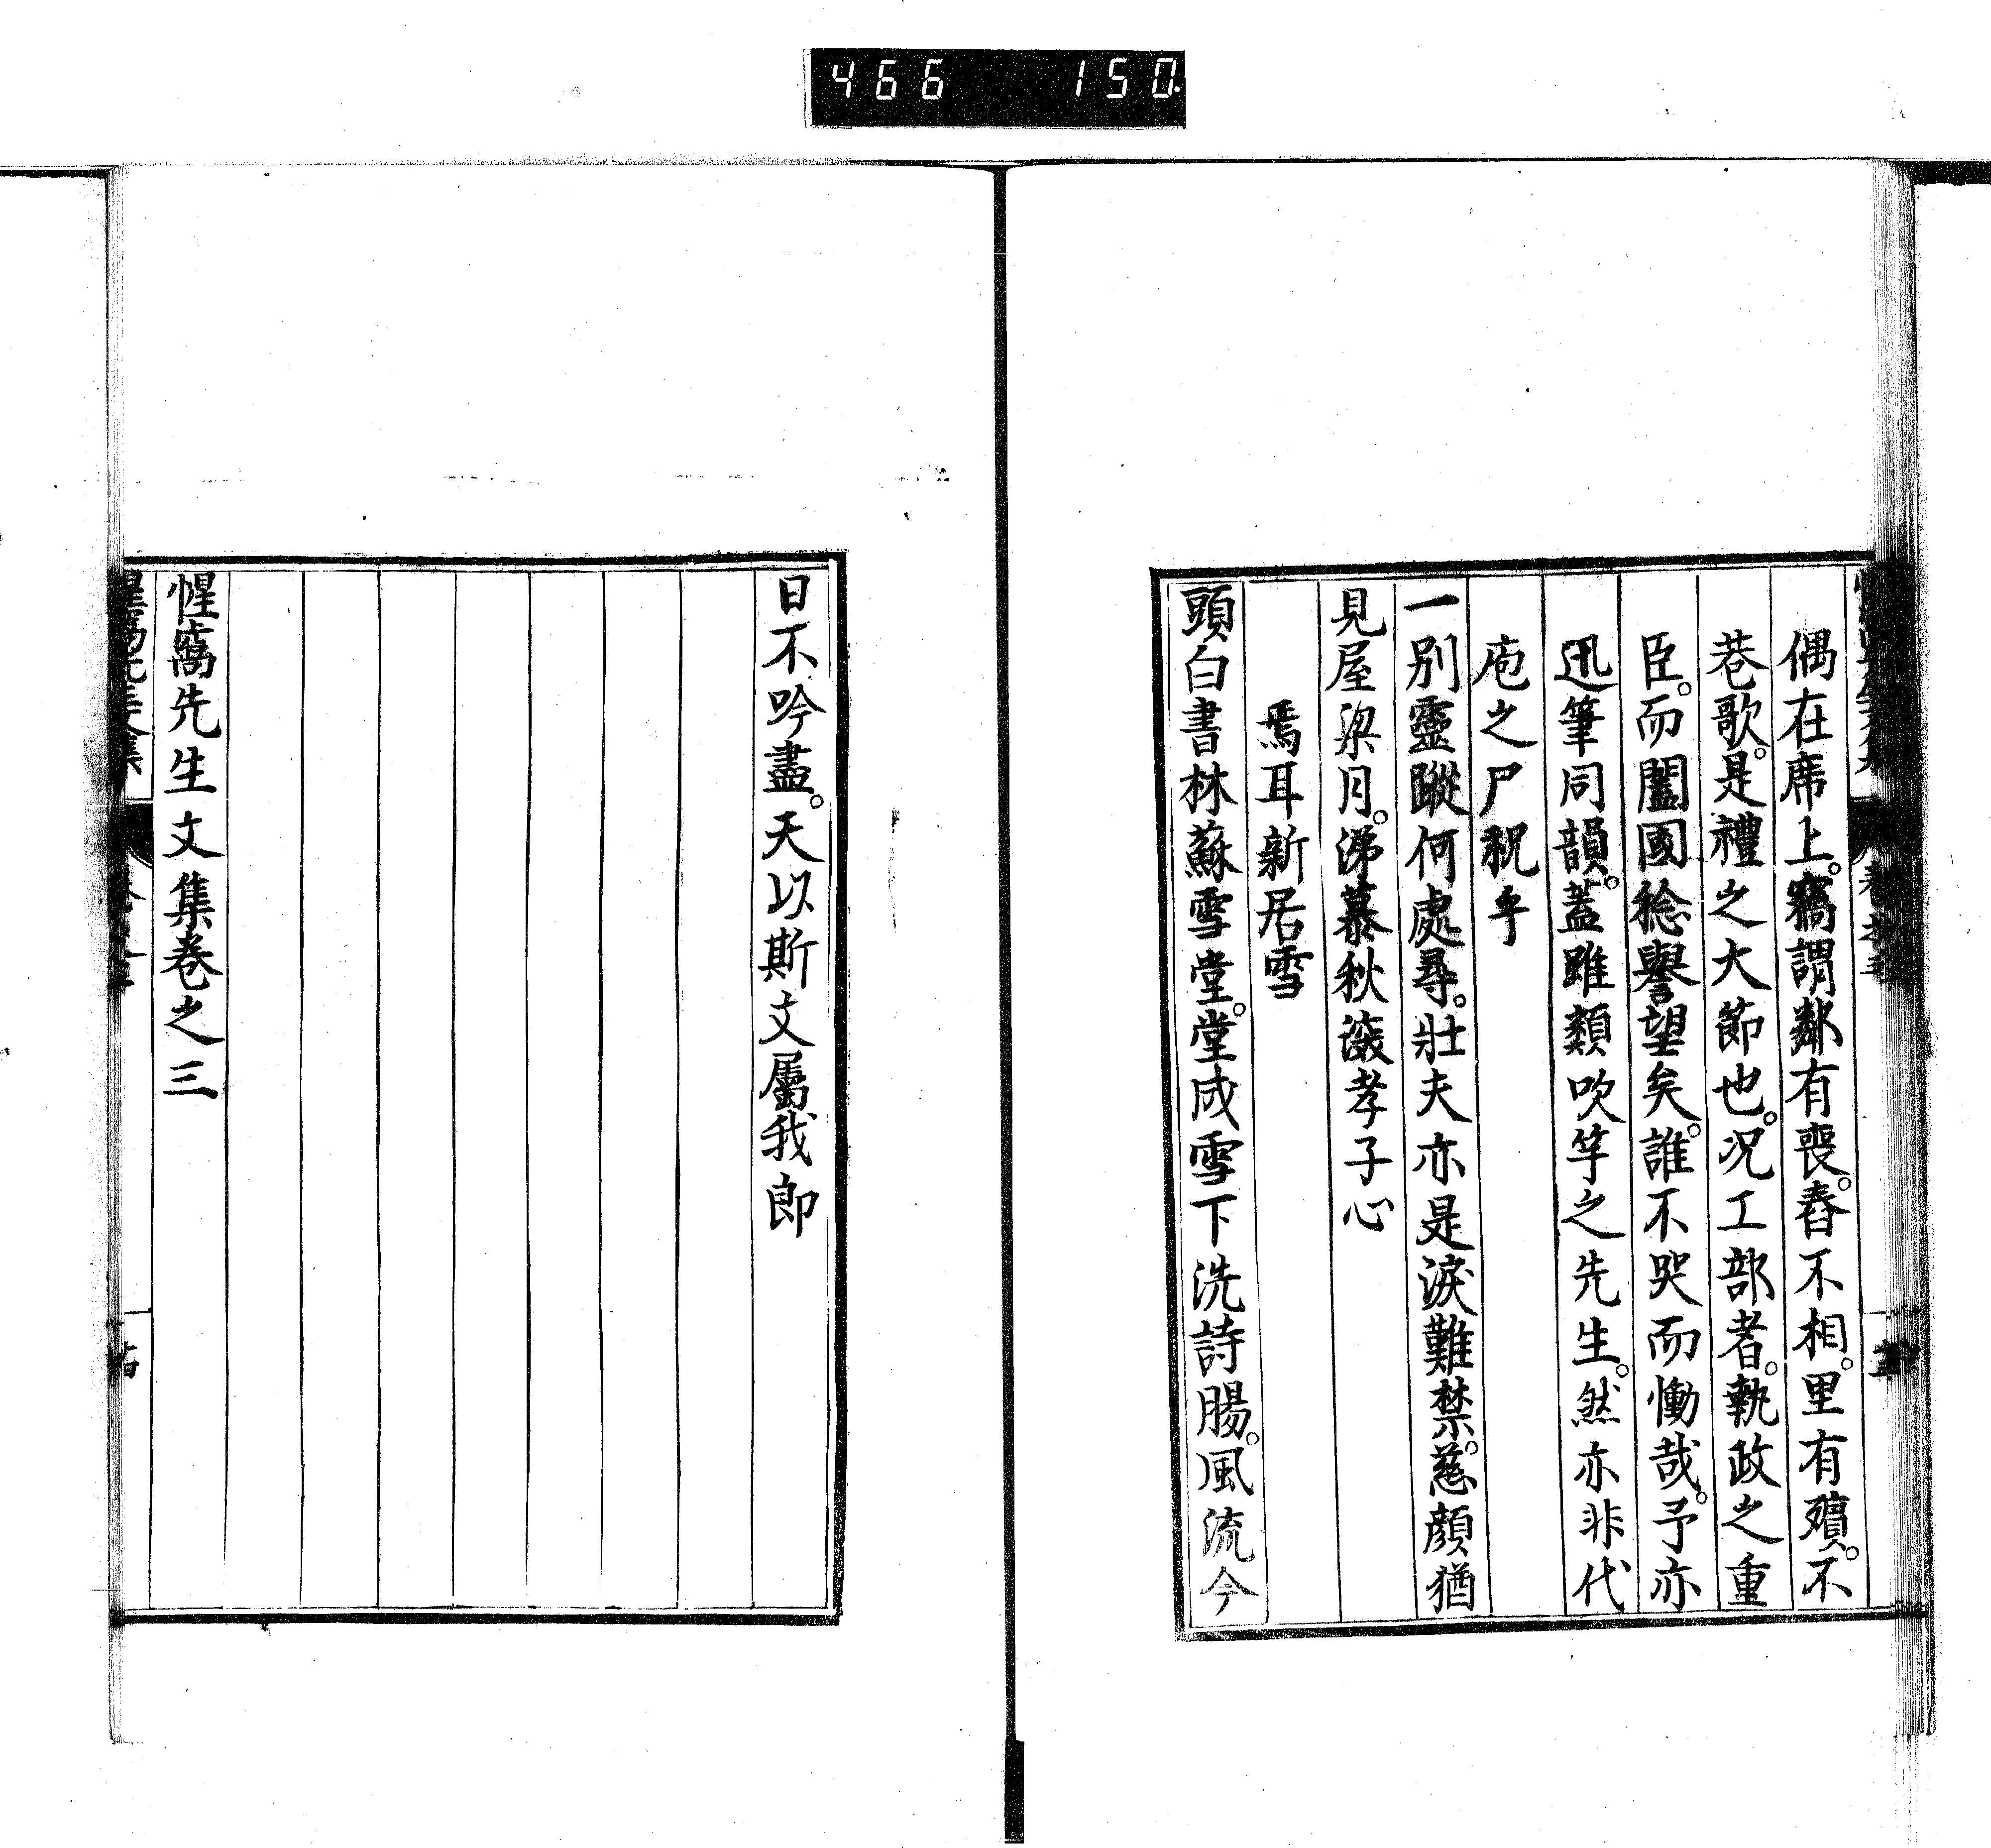 466 150.
偶在席上。竊謂鄰有喪。舂不相。里有殯。不
巷歌。是禮之大節也。况工部者。執政之重
臣。而闔國稔譽望矣。誰不哭而慟哉。予亦
迅筆同韻。蓋雖類吹竽之先生。然亦非代
庖之尸祝乎
一別靈蹤何處尋。壯夫亦是淚難禁。慈顔猶
見屋梁月。涕慕秋滋孝子心
焉耳新居雪
頭白書林蘇雪堂。堂成雪下洗詩腸。風流今
日不吟盡。天以斯文屬我郎
惺窩先生文集卷之三